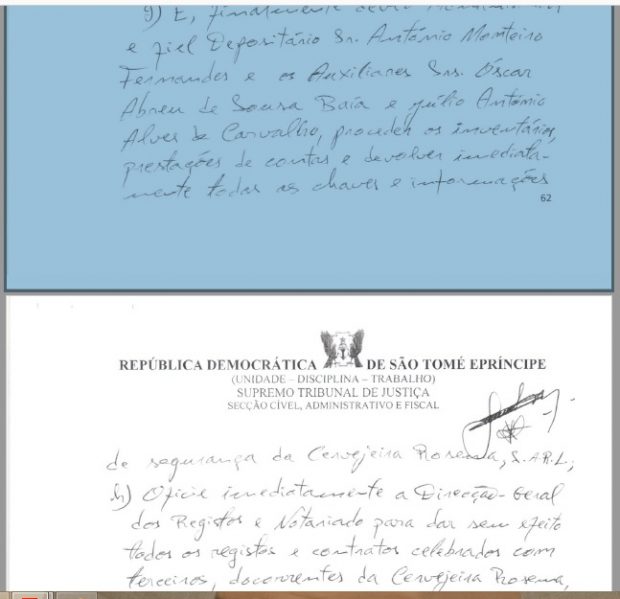 g) E, finalmente
e fiel Depositário Sr. António Monteiro
Fernandes e os Auxiliares Srs. Óscar
Abreu de Sousa Baía e Júlio António
Alves de Carvalho, proceder os inventários,
prestações de contas e devolver imediata-
mente todas as chaves e informações
62
REPÚBLICA DEMOCRÁTICA DE SÃO TOMÉ EPRÍNCIPE
(UNIDADE – DISCIPLINA – TRABALHO)
SUPREMO TRIBUNAL DE JUSTIÇA
SECÇÃO CÍVEL, ADMINISTRATIVO E FISCAL
de segurança da Cervejeira Rosema, S.A.R.L;
h) Oficie imediatamente a Direcção-Geral
dos Registos e Notariado para dar sem efeito
todos os registos e contratos celebrados com
terceiros, decorrentes da Cervejeira Rosema,